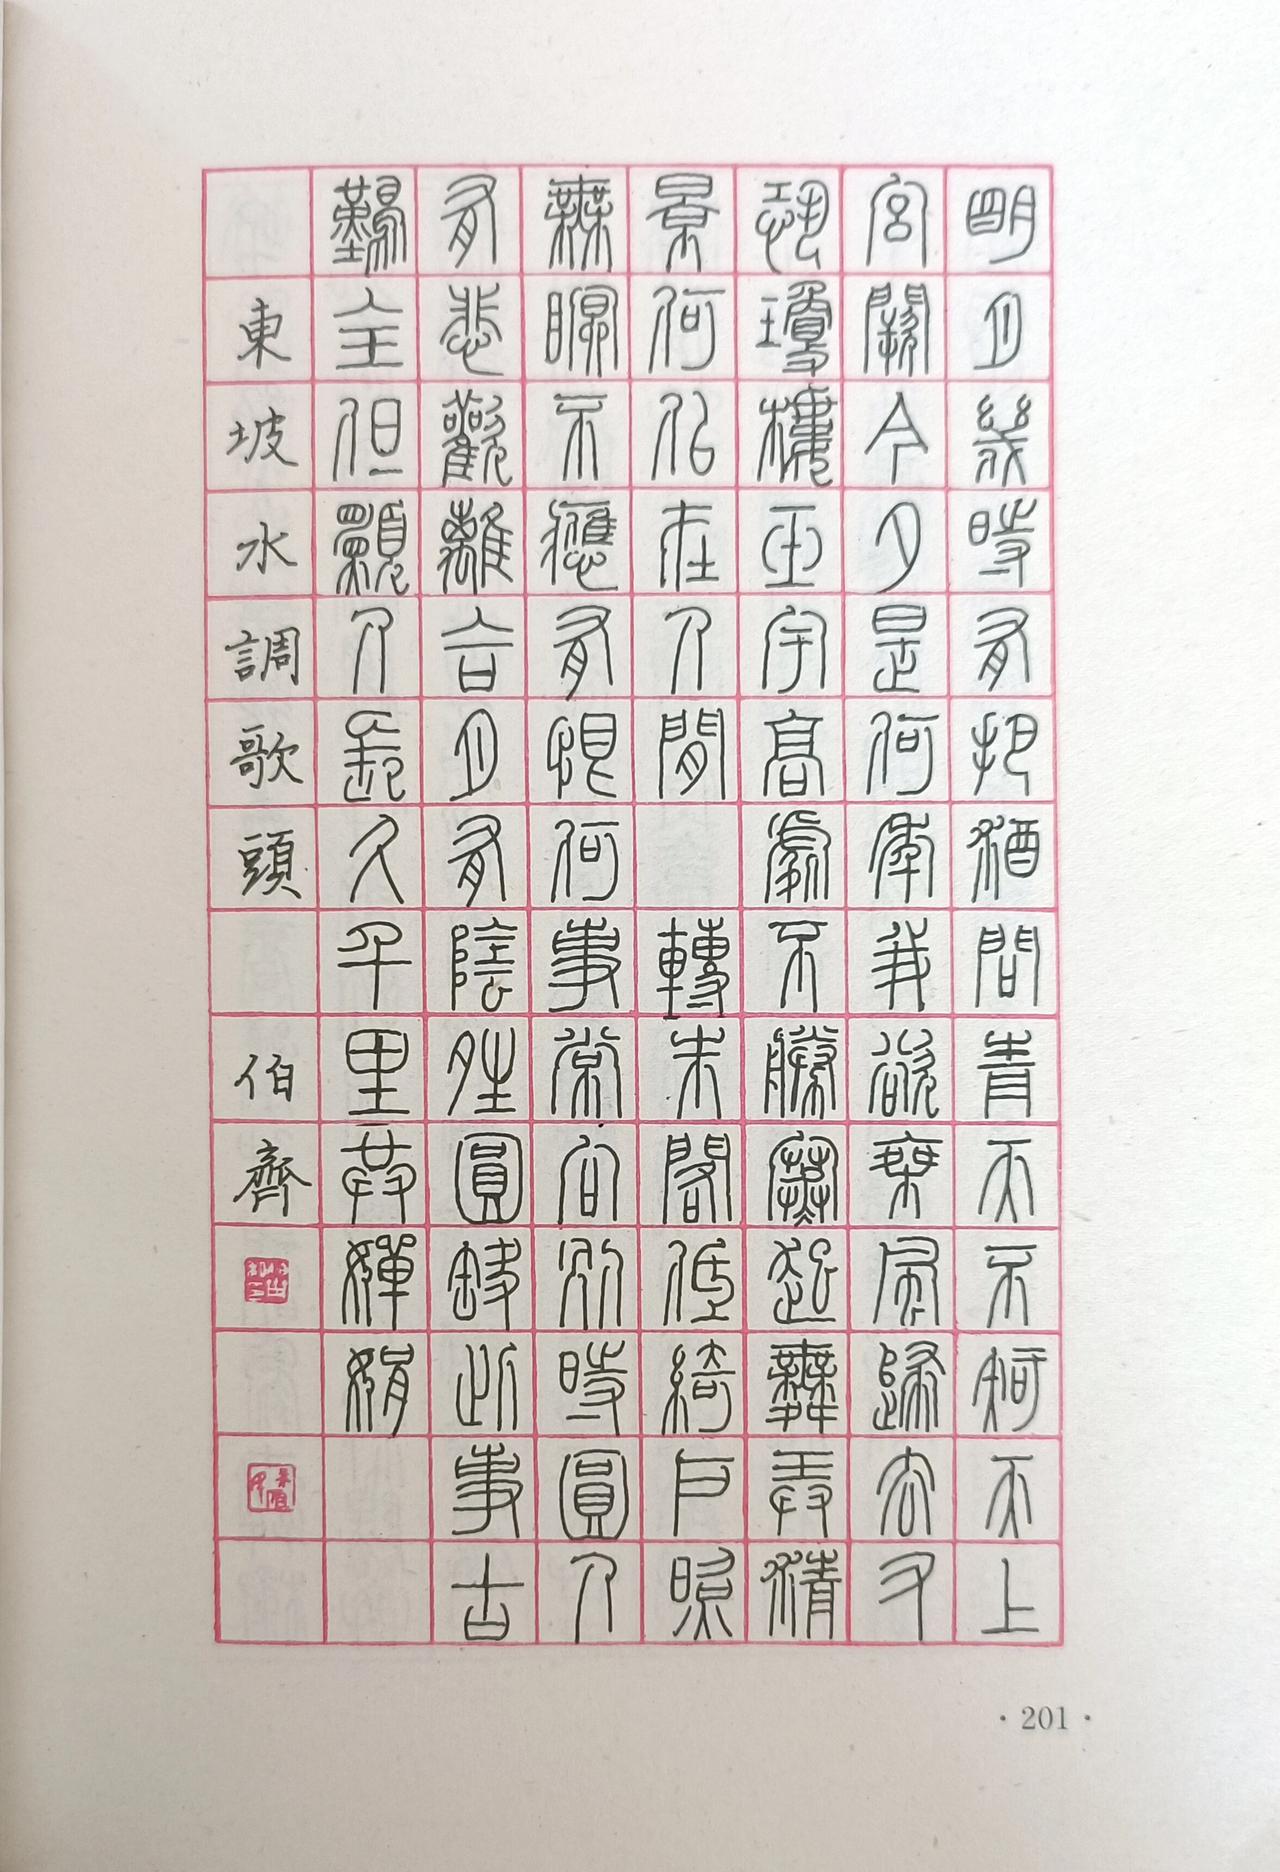 明月幾時有把酒問青天不知天上
宮闕今夕是何年我欲乘風歸去又
恐瓊樓玉宇高處不勝寒起舞弄清
景何似在人間 轉朱閣低綺戶照
無眠不應有恨何事常向別時圓人
有悲歡離合月有陰夝圓缺此事古
難全但願人長久千里共嬋娟
東坡水調歌頭 伯齊
·201·